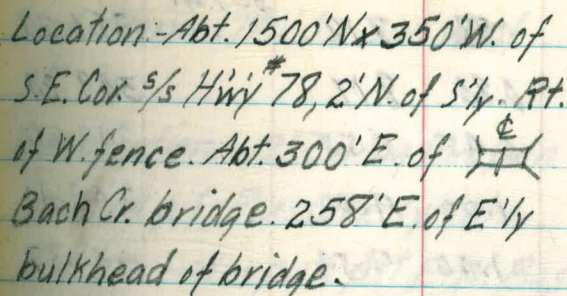 Location:-Abt. 1500'N x 350'W. of
S.E. Cor. s/s Hwy #78, 2'N. of S'ly. Rt.
of W. fence. Abt. 300' E. of ℄
Bach Cr. bridge. 258' E. of E'ly
bulkhead of bridge.